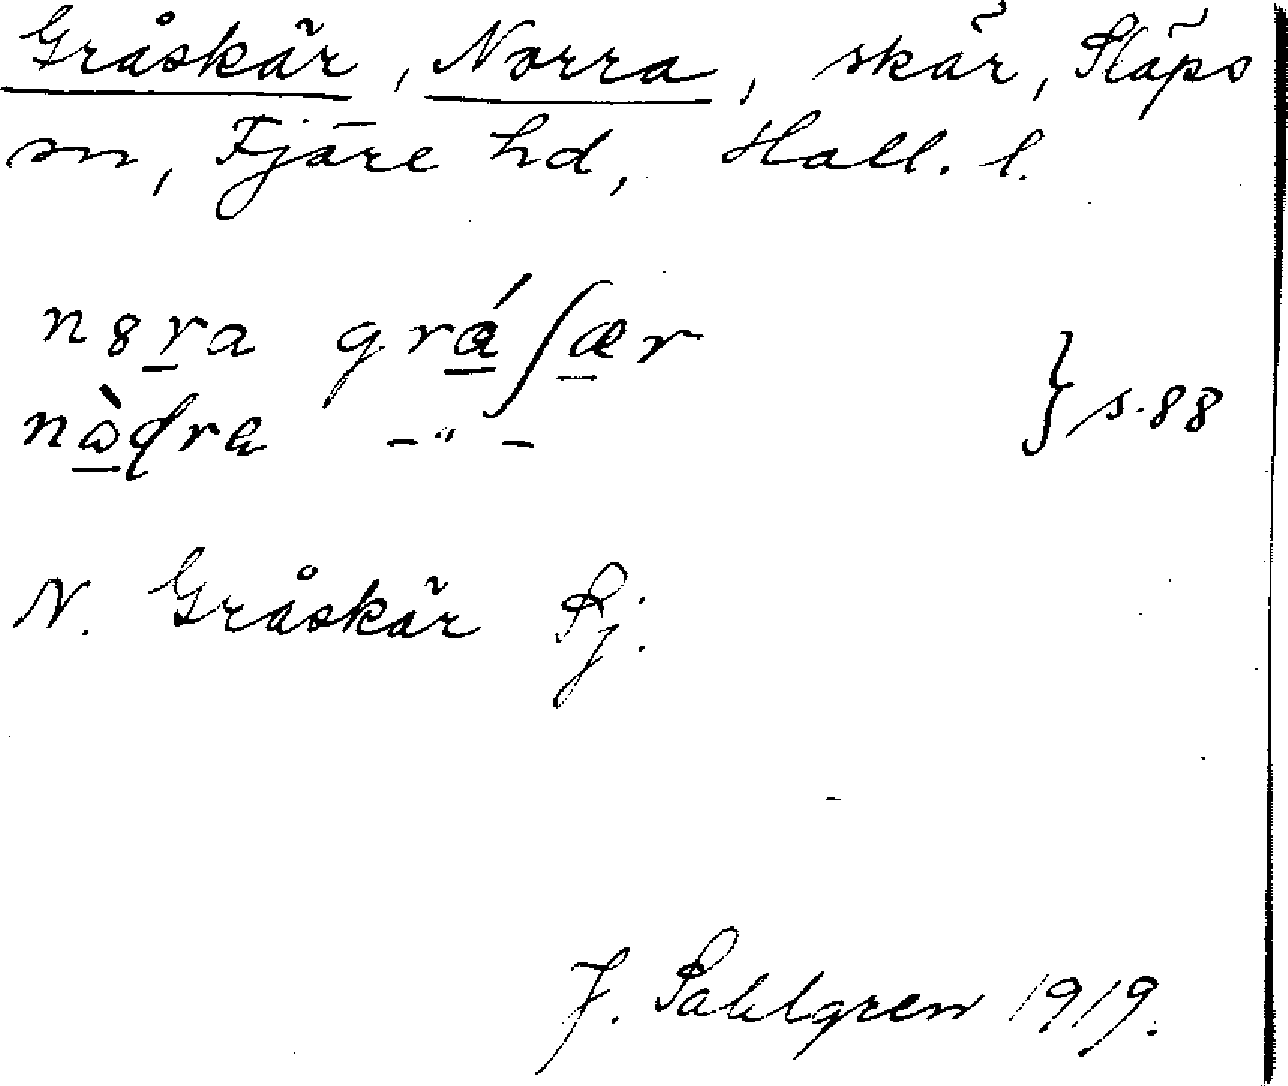 Gråskär, Norra, skär, Släps
sn, Fjäre hd, Hall. l.
n8ra grá∫ær
nòđra –"– } s. 88
N. Gråskär Sj.
J. Sahlgren 1919.